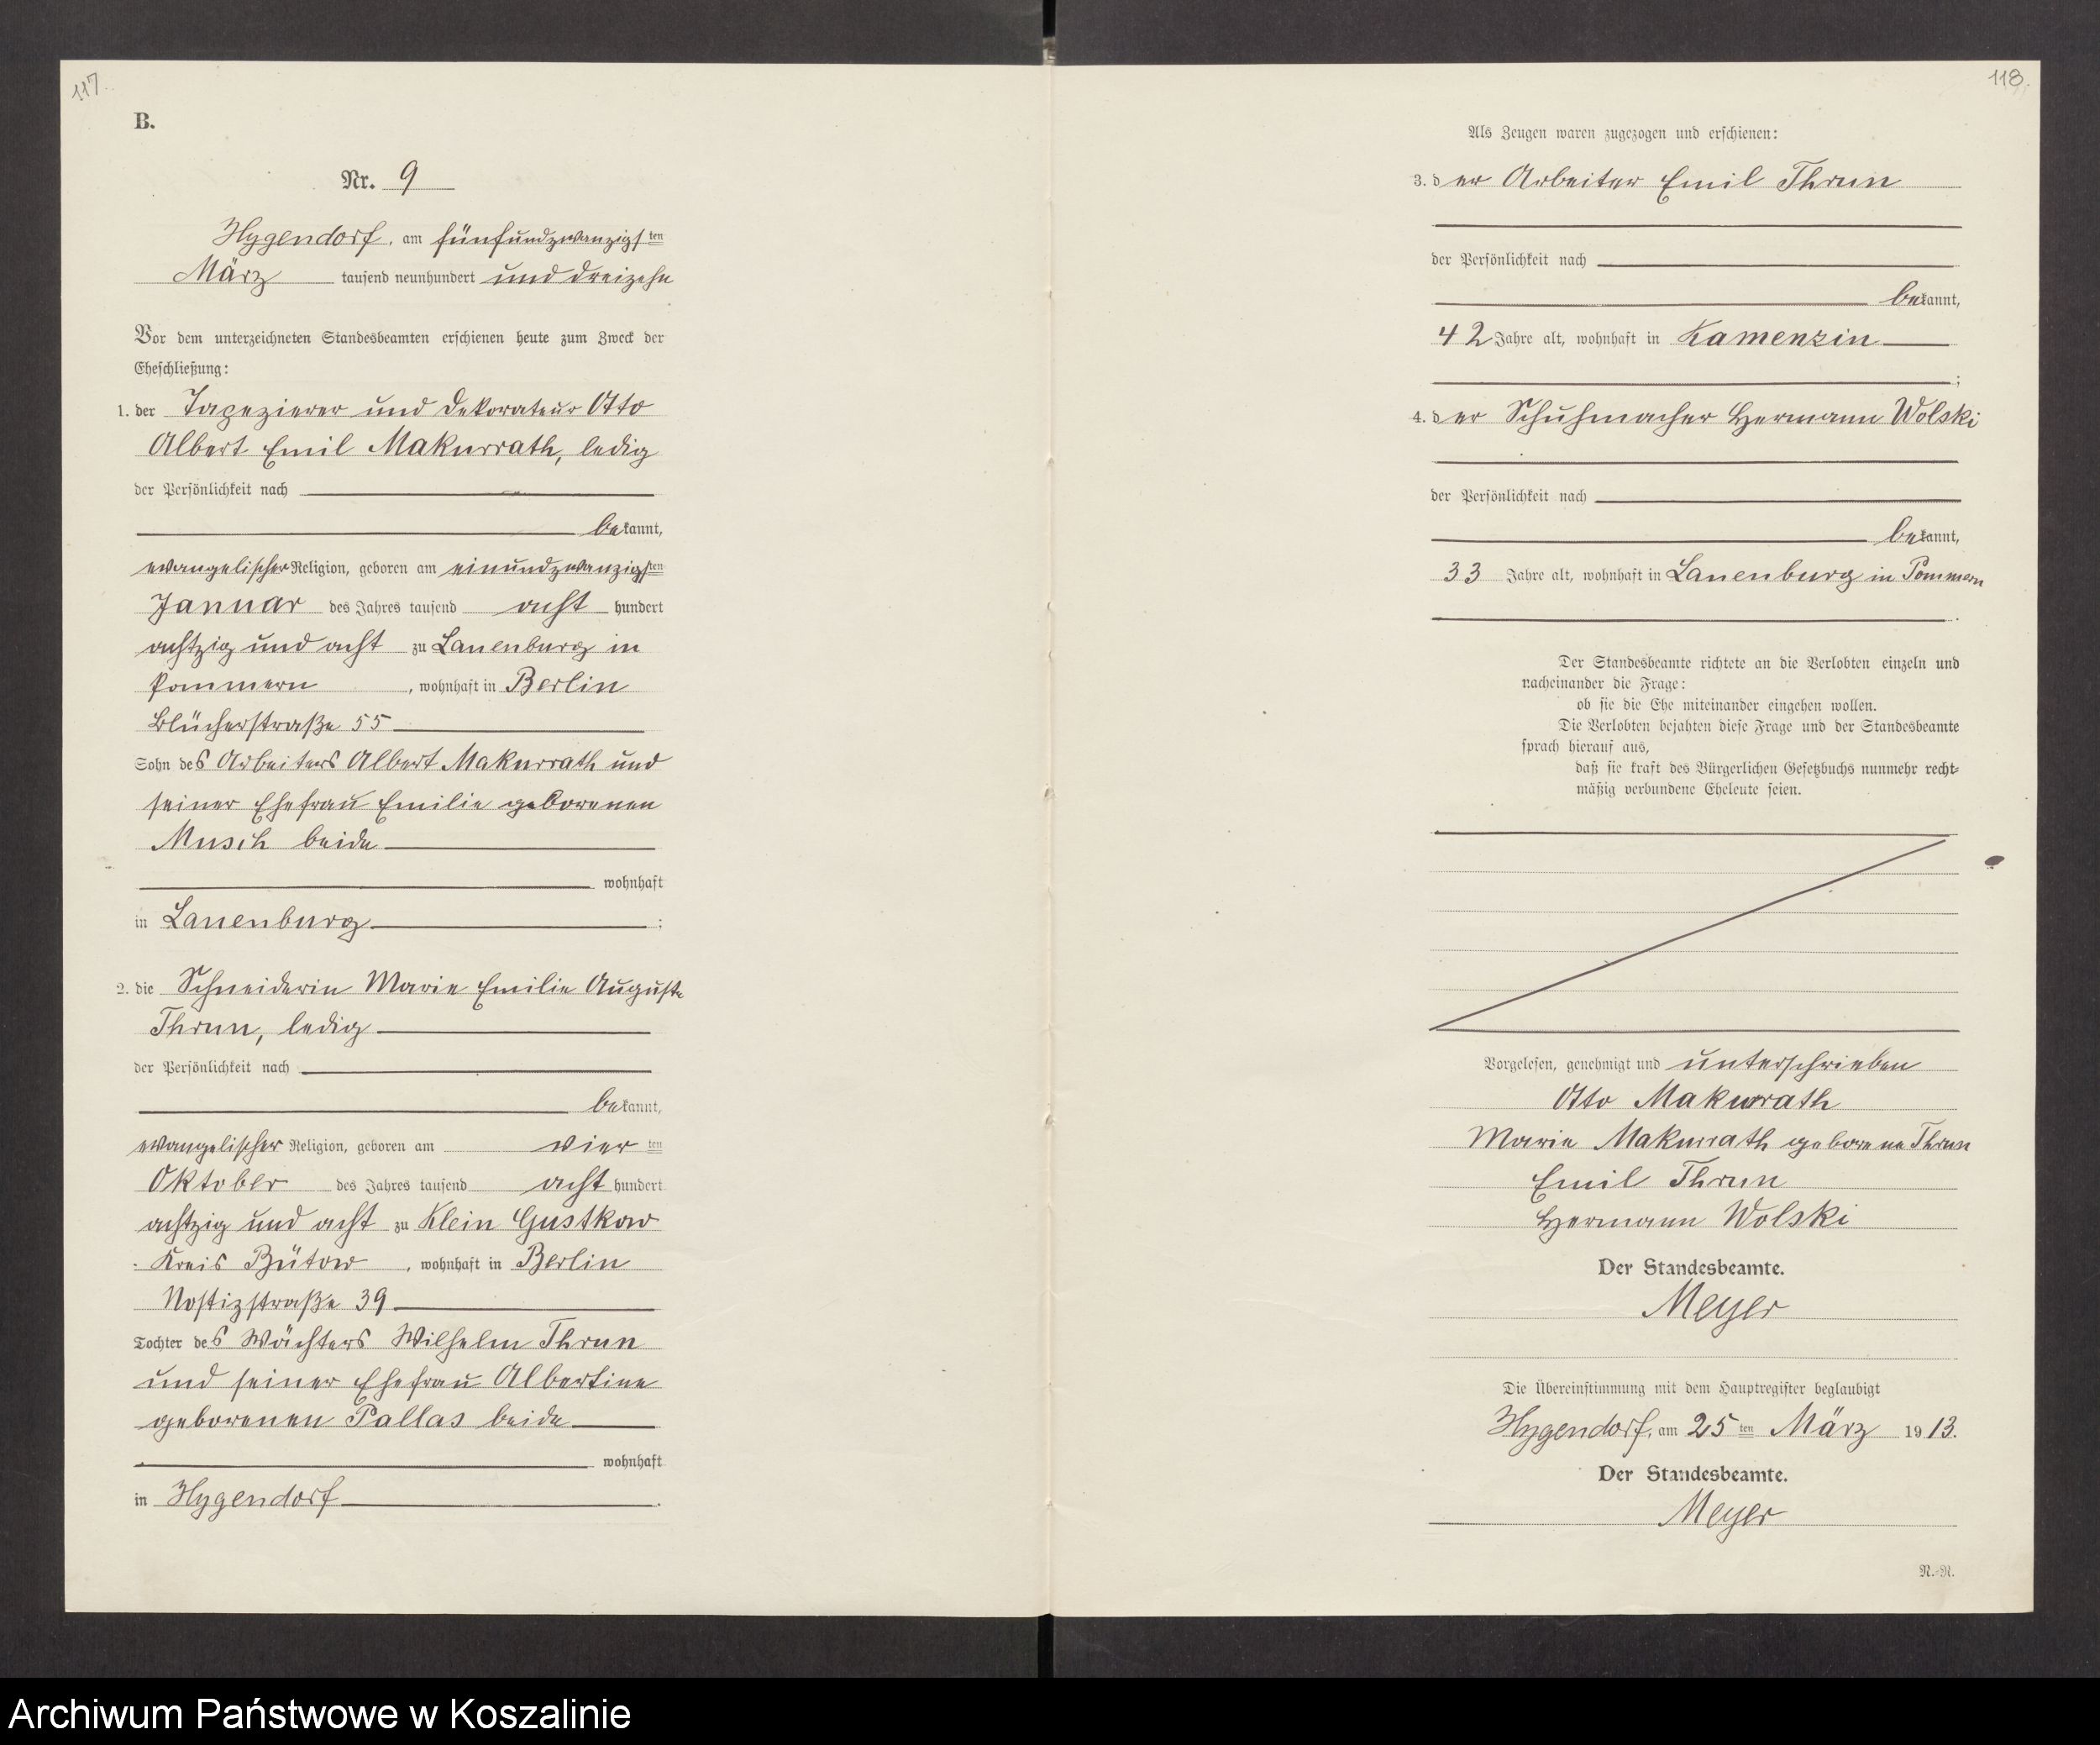 117.
B.
Nr. 9
Hygendorf, am fünfundzwanzigsten
März tausend neunhundert und dreizehn
Vor dem unterzeichneten Standesbeamten erschienen heute zum Zweck der
Eheschließung:
1. der Tapezierer und Dekorateur Otto
Albert Emil Makurrath, ledig
der Persönlichkeit nach
bekannt,
evangelischer Religion, geboren am einundzwanzigsten
Januar des Jahres tausend acht hundert
achtzig und acht zu Lauenburg in
Pommern, wohnhaft in Berlin
Blücherstraße 55
Sohn des Arbeiters Albert Makurrath und
seiner Ehefrau Emilie geborenen
Musch beide
wohnhaft
in Lauenburg;
2. die Schneiderin Marie Emilie Auguste
Thrun, ledig
der Persönlichkeit nach
bekannt,
evangelischer Religion, geboren am vierten
Oktober des Jahres tausend acht hundert
achtzig und acht zu Klein Gustkow
Kreis Bütow, wohnhaft in Berlin
Nostizstraße 39
Tochter des Wächters Wilhelm Thrun
und seiner Ehefrau Albertine
geborenen Pallas beide
wohnhaft
in Hygendorf.
118.
Als Zeugen waren zugezogen und erschienen:
3. der Arbeiter Emil Thrun
der Persönlichkeit nach
bekannt,
42 Jahre alt, wohnhaft in Kamenzin
;
4. der Schuhmacher Hermann Wolski
der Persönlichkeit nach
bekannt,
33 Jahre alt, wohnhaft in Lauenburg in Pommern
.
Der Standesbeamte richtete an die Verlobten einzeln und
nacheinander die Frage:
ob sie die Ehe miteinander eingehen wollen.
Die Verlobten bejahten diese Frage und der Standesbeamte
sprach hierauf aus,
daß sie kraft des Bürgerlichen Gesetzbuchs nunmehr recht-
mäßig verbundene Eheleute seien.
Vorgelesen, genehmigt und unterschrieben
Otto Makurrath
Marie Makurrath geborene Thrun
Emil Thrun
Hermann Wolski
Der Standesbeamte.
Meyer
Die Übereinstimmung mit dem Hauptregister beglaubigt
Hygendorf, am 25ten März 1913.
Der Standesbeamte.
Meyer
N.-R.
Archiwum Państwowe w Koszalinie